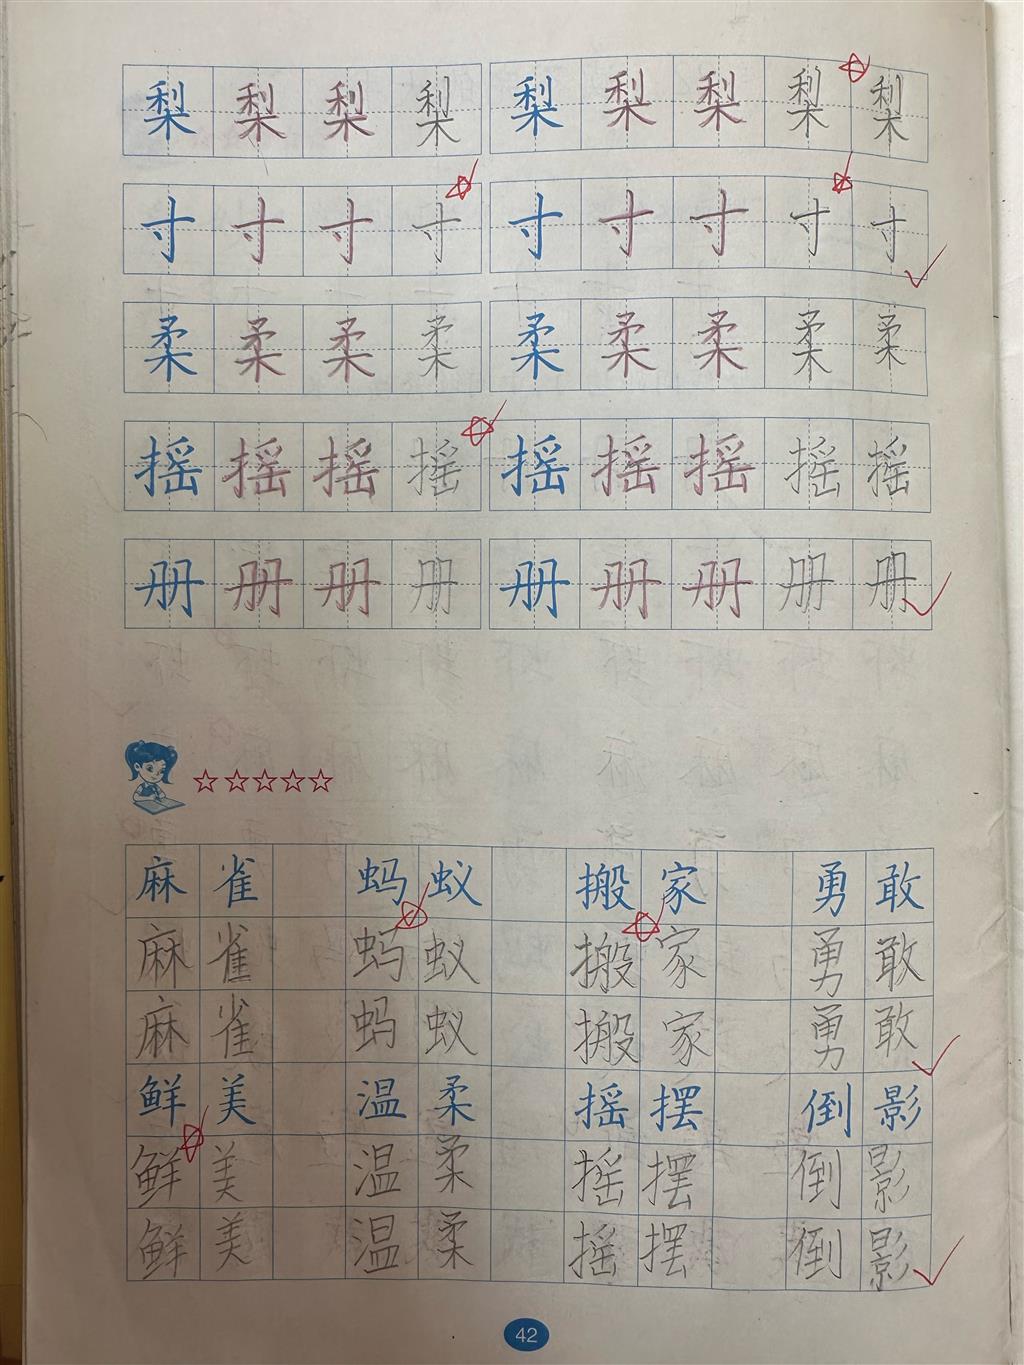 梨 梨 梨 梨 梨 梨 梨 梨 梨
寸 寸 寸 寸 寸 寸 寸 寸 寸
柔 柔 柔 柔 柔 柔 柔 柔 柔
摇 摇 摇 摇 摇 摇 摇 摇 摇
册 册 册 册 册 册 册 册 册
☆☆☆☆☆
麻雀 蚂蚁 搬家 勇敢
麻雀 蚂蚁 搬家 勇敢
麻雀 蚂蚁 搬家 勇敢
鲜美 温柔 摇摆 倒影
鲜美 温柔 摇摆 倒影
鲜美 温柔 摇摆 倒影
42